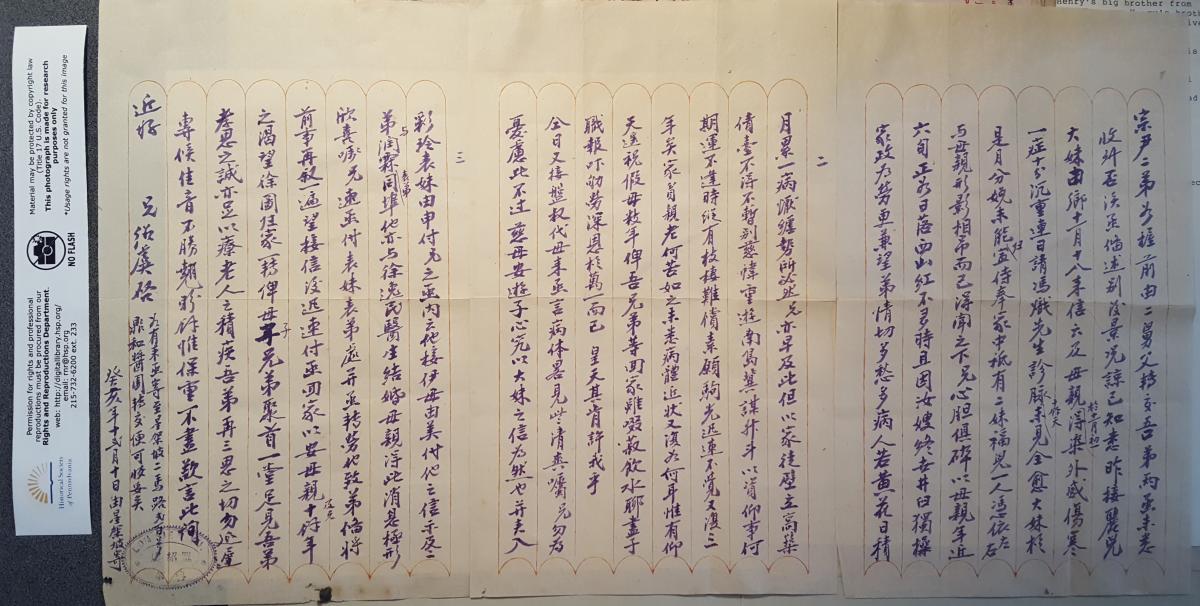 宗尹二弟如握前由二舅父轉交吾弟兩函未悉
收到否該函備述別後景況諒已知悉昨接麗兒
大妹由鄉十一月十八來信云及母親於月初得染外感傷寒
一症十分沉重連日請馮熾先生診脉未見全愈大妹於
是月分娩未能歸侍奉家中祗有二妹福兒一人憑依左右
与母親形影相吊而已得聞之下兄心胆俱碎以母親年近
六旬正如日落西山紅不多時且因汝嫂終去井臼獨操
家政为勞更兼望弟情切多愁多病人若黃花日積
二
月累一病懨纏勢所必然兄亦早及此但以家徒壁立高築
債臺不得不暫別慈幃重遊南島冀謀升斗以資仰事何
期運不逢時縱有枝棲難償素願駒光迅速不覺又復三
年矣家有親老何若如之未悉病體近狀又復如何耳惟有仰
天遥祝假母數年俾吾兄弟等回家雖啜菽飲水聊盡子
職報以劬勞深恩於萬一而已 皇天其肯許我乎
全日又接盤叔代母來函言病体畧見些清爽囑兄勿為
憂慮此不过慈母安遊子心究以大妹之信为然也并夫入
三
彩玲表妹由申付兄之函內云他接伊母由美付他之信示及二
弟与表弟同埠他亦与徐逸民醫生結婚母親得此消息極形
欣喜囑兄速函付表妹表弟處并函轉勞他致弟備將
前事再叙一遍望接信後迅速付函回家以安母親十餘年
之渴望徐圖歸家一轉俾母子兄弟聚首一堂足見吾弟
孝思之誠亦足以療老人之積疾吾弟再三思之切勿迟遲
專候佳音不勝翹盼餘惟保重不盡欵言此詢
近好 兄紹虞啓
如有來函寄至星架坡二馬路
鼎和醬園轉交便可收妥矣
癸亥年十弍月十日由星架坡寄
Henry's big brother from
Permission for rights and professional
reproductions must be procured from our
Rights and Reproductions Department.
web: http://digitallibrary.hsp.org/
email: rnr@hsp.org
215-732-6200 ext. 233
Historical Society
of Pennsylvania
Material may be protected by copyright law
(Title 17 U.S. Code).
This photograph is made for research
purposes only
*Usage rights are not granted for this image
NO FLASH